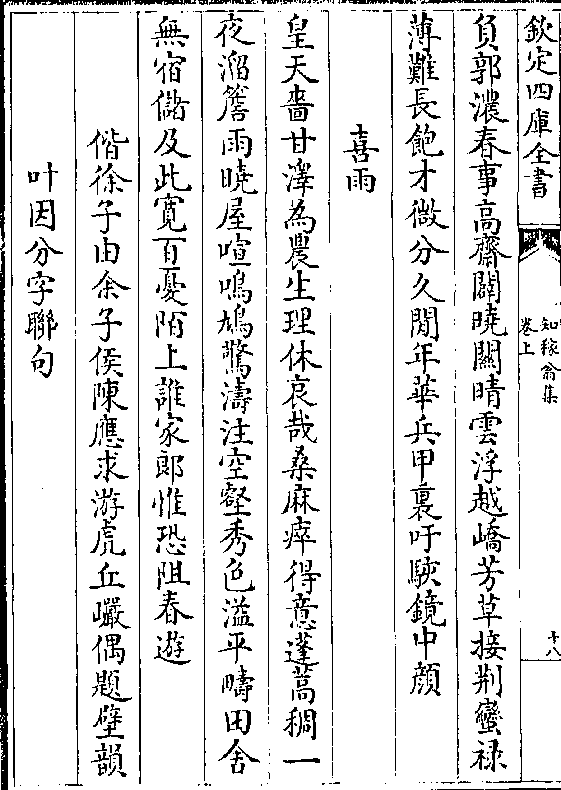 欽定四庫全書
知稼翁集
卷上
十八
負郭濃春事高齋闢曉關晴雲浮越嶠芳草接荆蠻禄
薄難長飽才微分久閒年華兵甲裏吁駭鏡中顔
喜雨
皇天嗇甘澤為農生理休哀哉桑麻瘁得意蓬蒿稠一
夜溜簷雨曉屋喧鳴鳩驚濤注空壑秀色溢平疇田舍
無宿儲及此寛百憂陌上誰家郎惟恐阻春遊
偕徐子由余子侯陳應求游虎丘巗偶題壁韻
叶因分字聯句